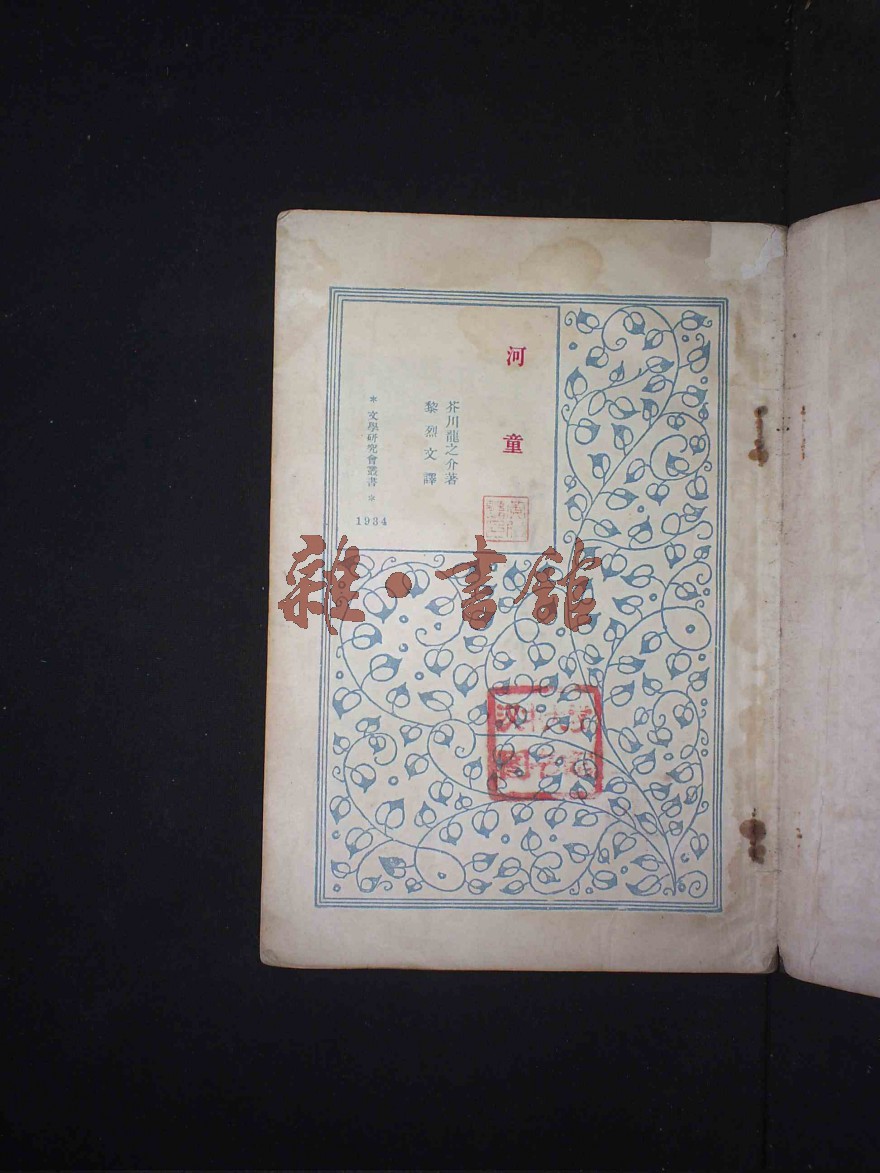 河童
芥川龍之介著
黎烈文譯
＊文學研究會叢書＊
1934
雜·書館